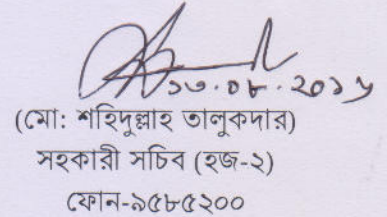 ১৩.০৮.২০১৬
(মো: শহিদুল্লাহ তালুকদার)
সহকারী সচিব (হজ-২)
ফোন-৯৫৮৫২০০